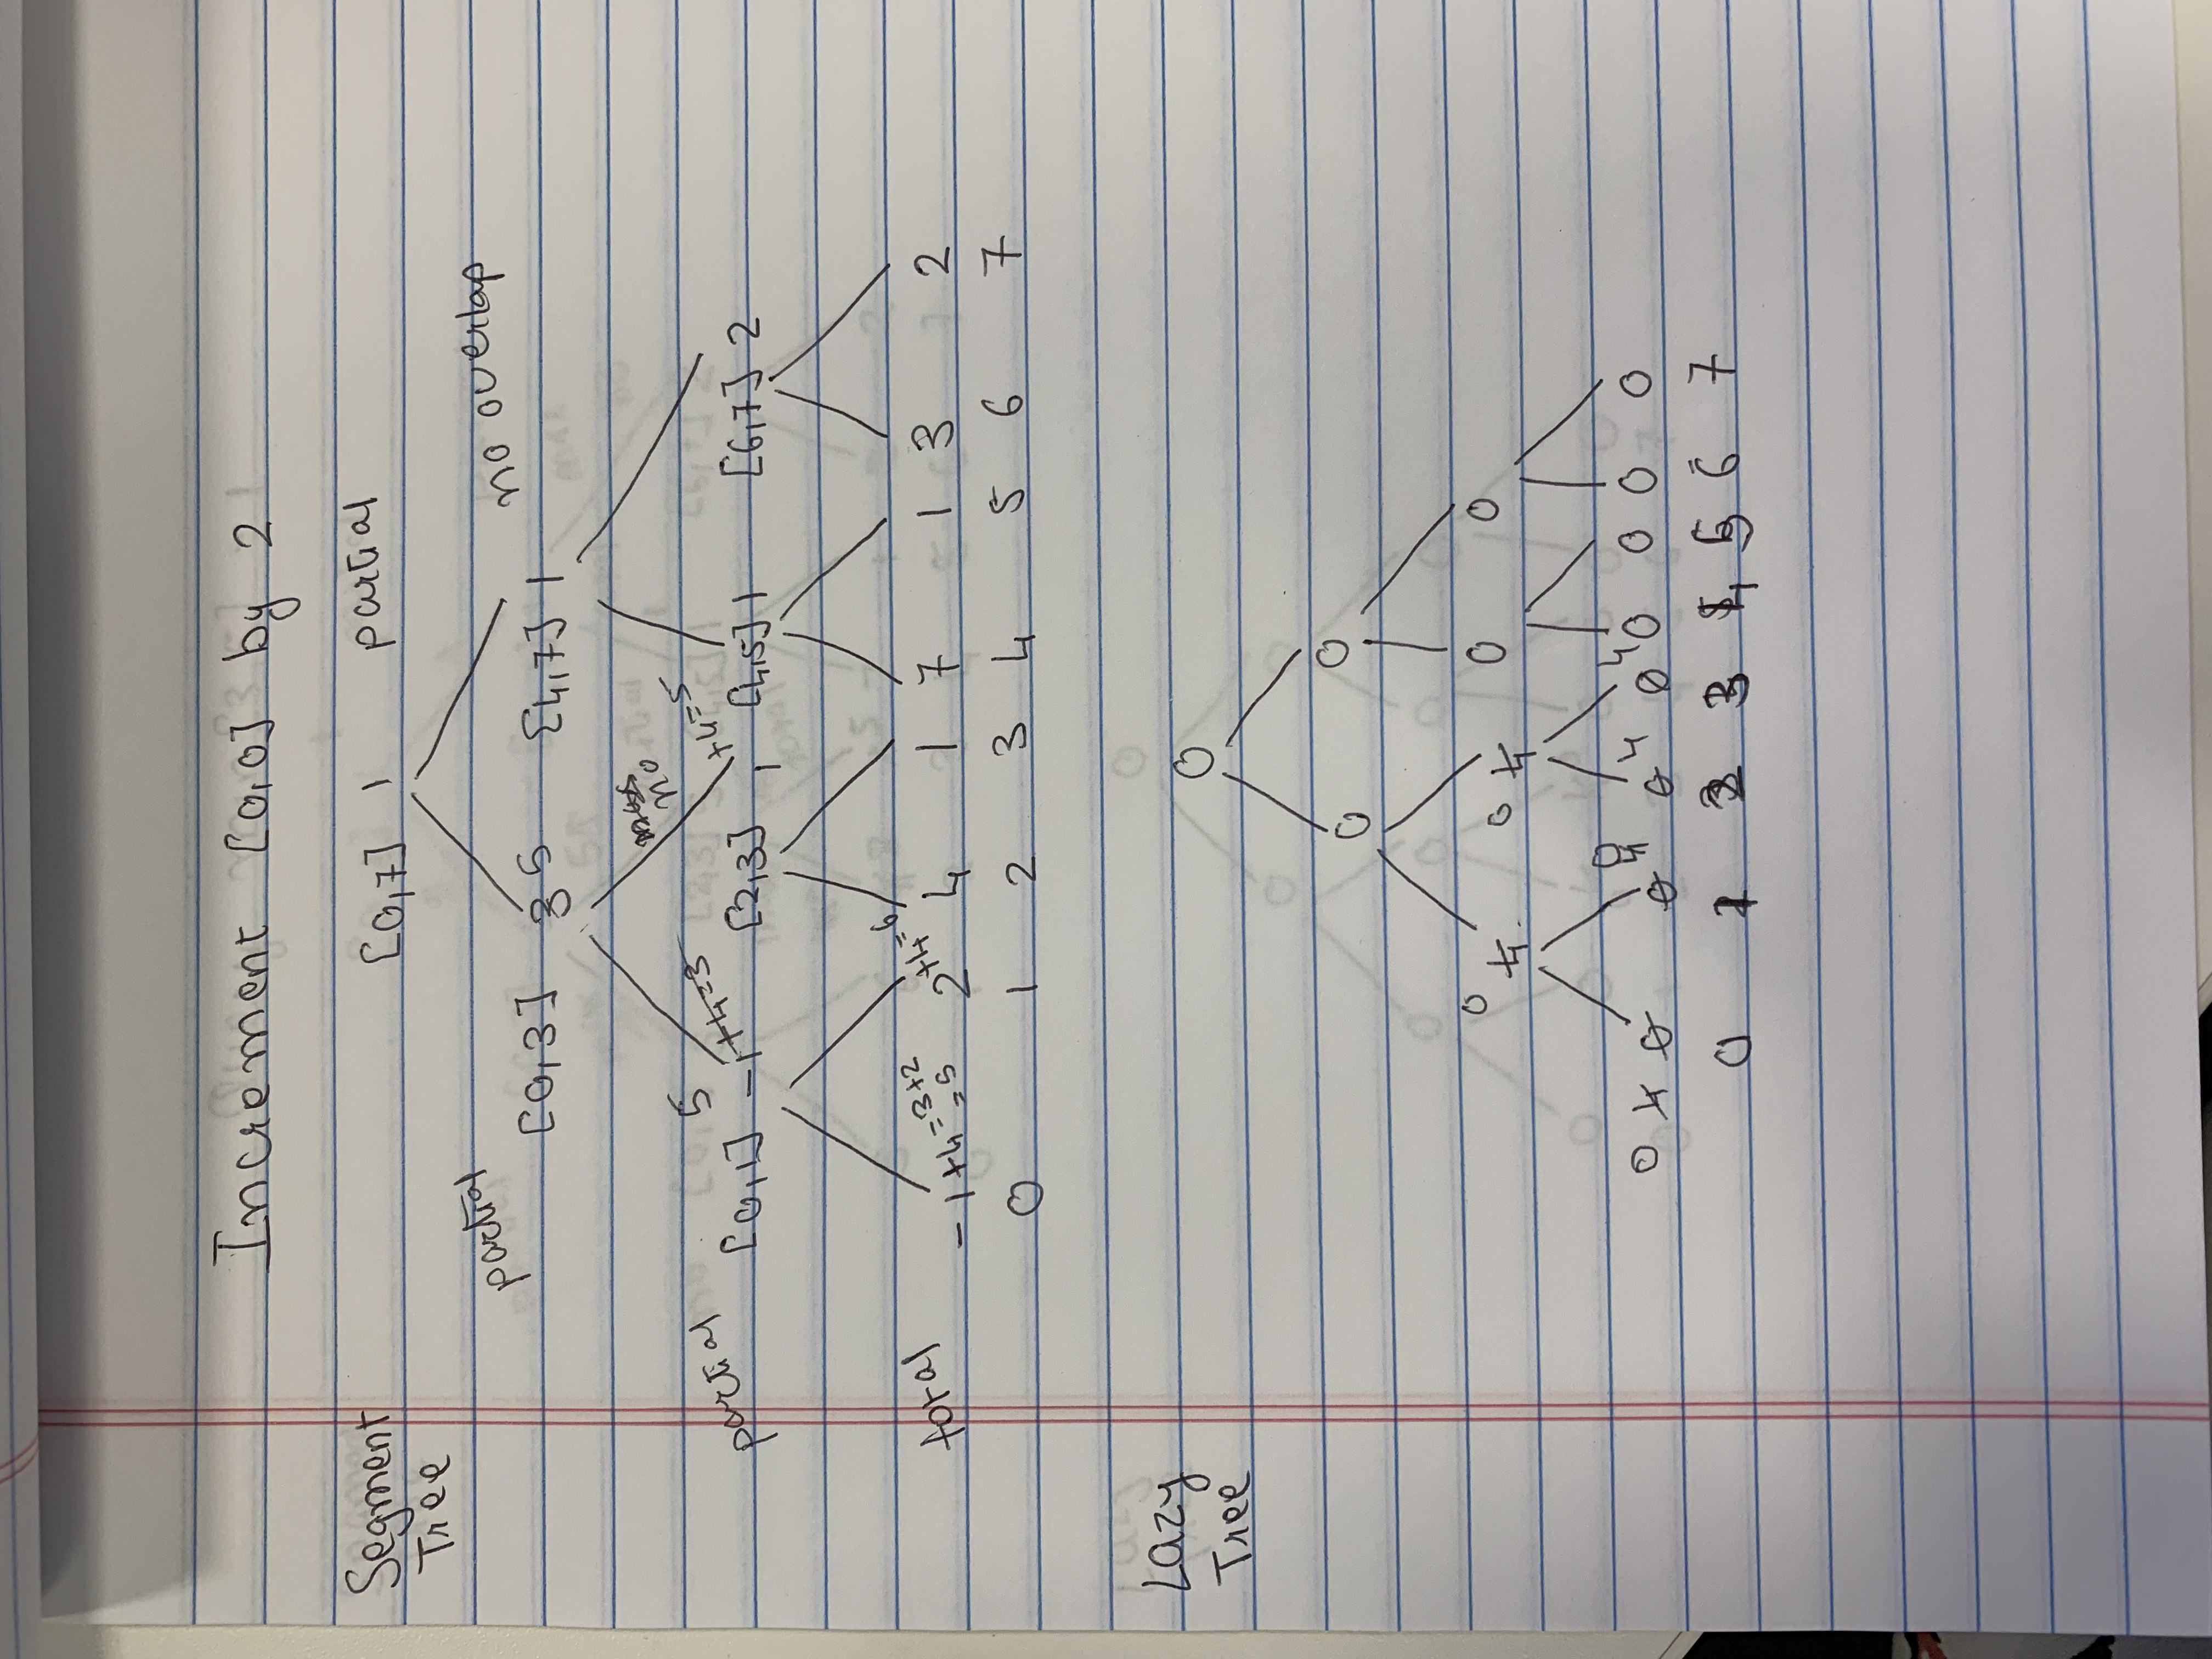 Increment [0,0] by 2
Segment Tree
[0,7] 1 partial
partial [0,3] 3 5 [4,7] 1 no overlap
no
partial [0,1] 5 -1+4=3 [2,3] 1 +4=5 [4,5] 1 [6,7] 2
total -1+4=3+2 =5 2+4=6 4 1 7 1 3 2
0 1 2 3 4 5 6 7
Lazy Tree
0
0 0
0 4 0 4 0 0
0 4 0 0 4 0 0 4 0 4 0 0 0 0
0 1 2 3 4 5 6 7